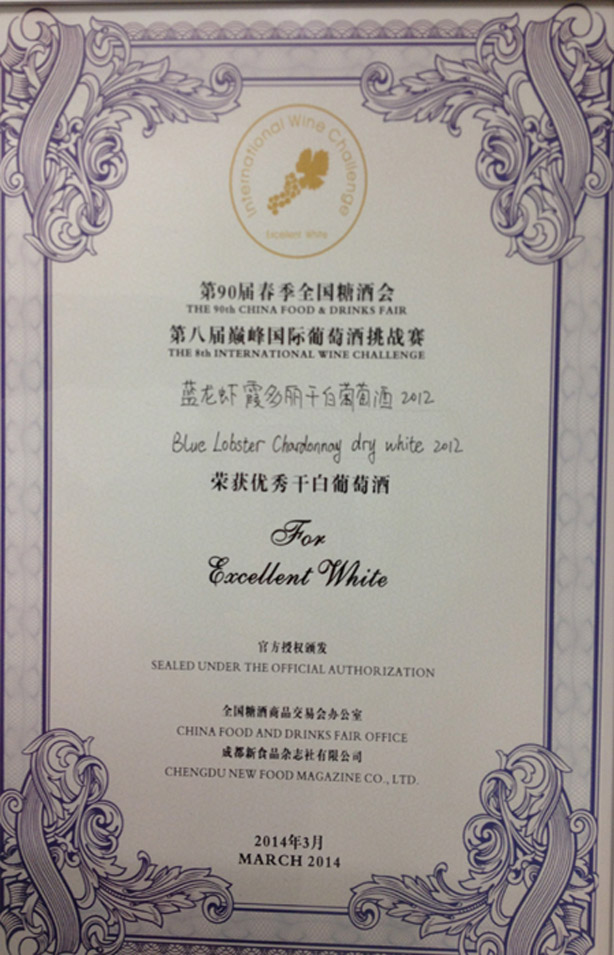 International Wine Challenge
Excellent White
第90届春季全国糖酒会
THE 90th CHINA FOOD & DRINKS FAIR
第八届巅峰国际葡萄酒挑战赛
THE 8th INTERNATIONAL WINE CHALLENGE
蓝龙虾 霞多丽干白葡萄酒 2012
Blue Lobster Chardonnay dry white 2012
荣获优秀干白葡萄酒
For
Excellent White
官方授权颁发
SEALED UNDER THE OFFICIAL AUTHORIZATION
全国糖酒商品交易会办公室
CHINA FOOD AND DRINKS FAIR OFFICE
成都新食品杂志社有限公司
CHENGDU NEW FOOD MAGAZINE CO., LTD.
2014年3月
MARCH 2014